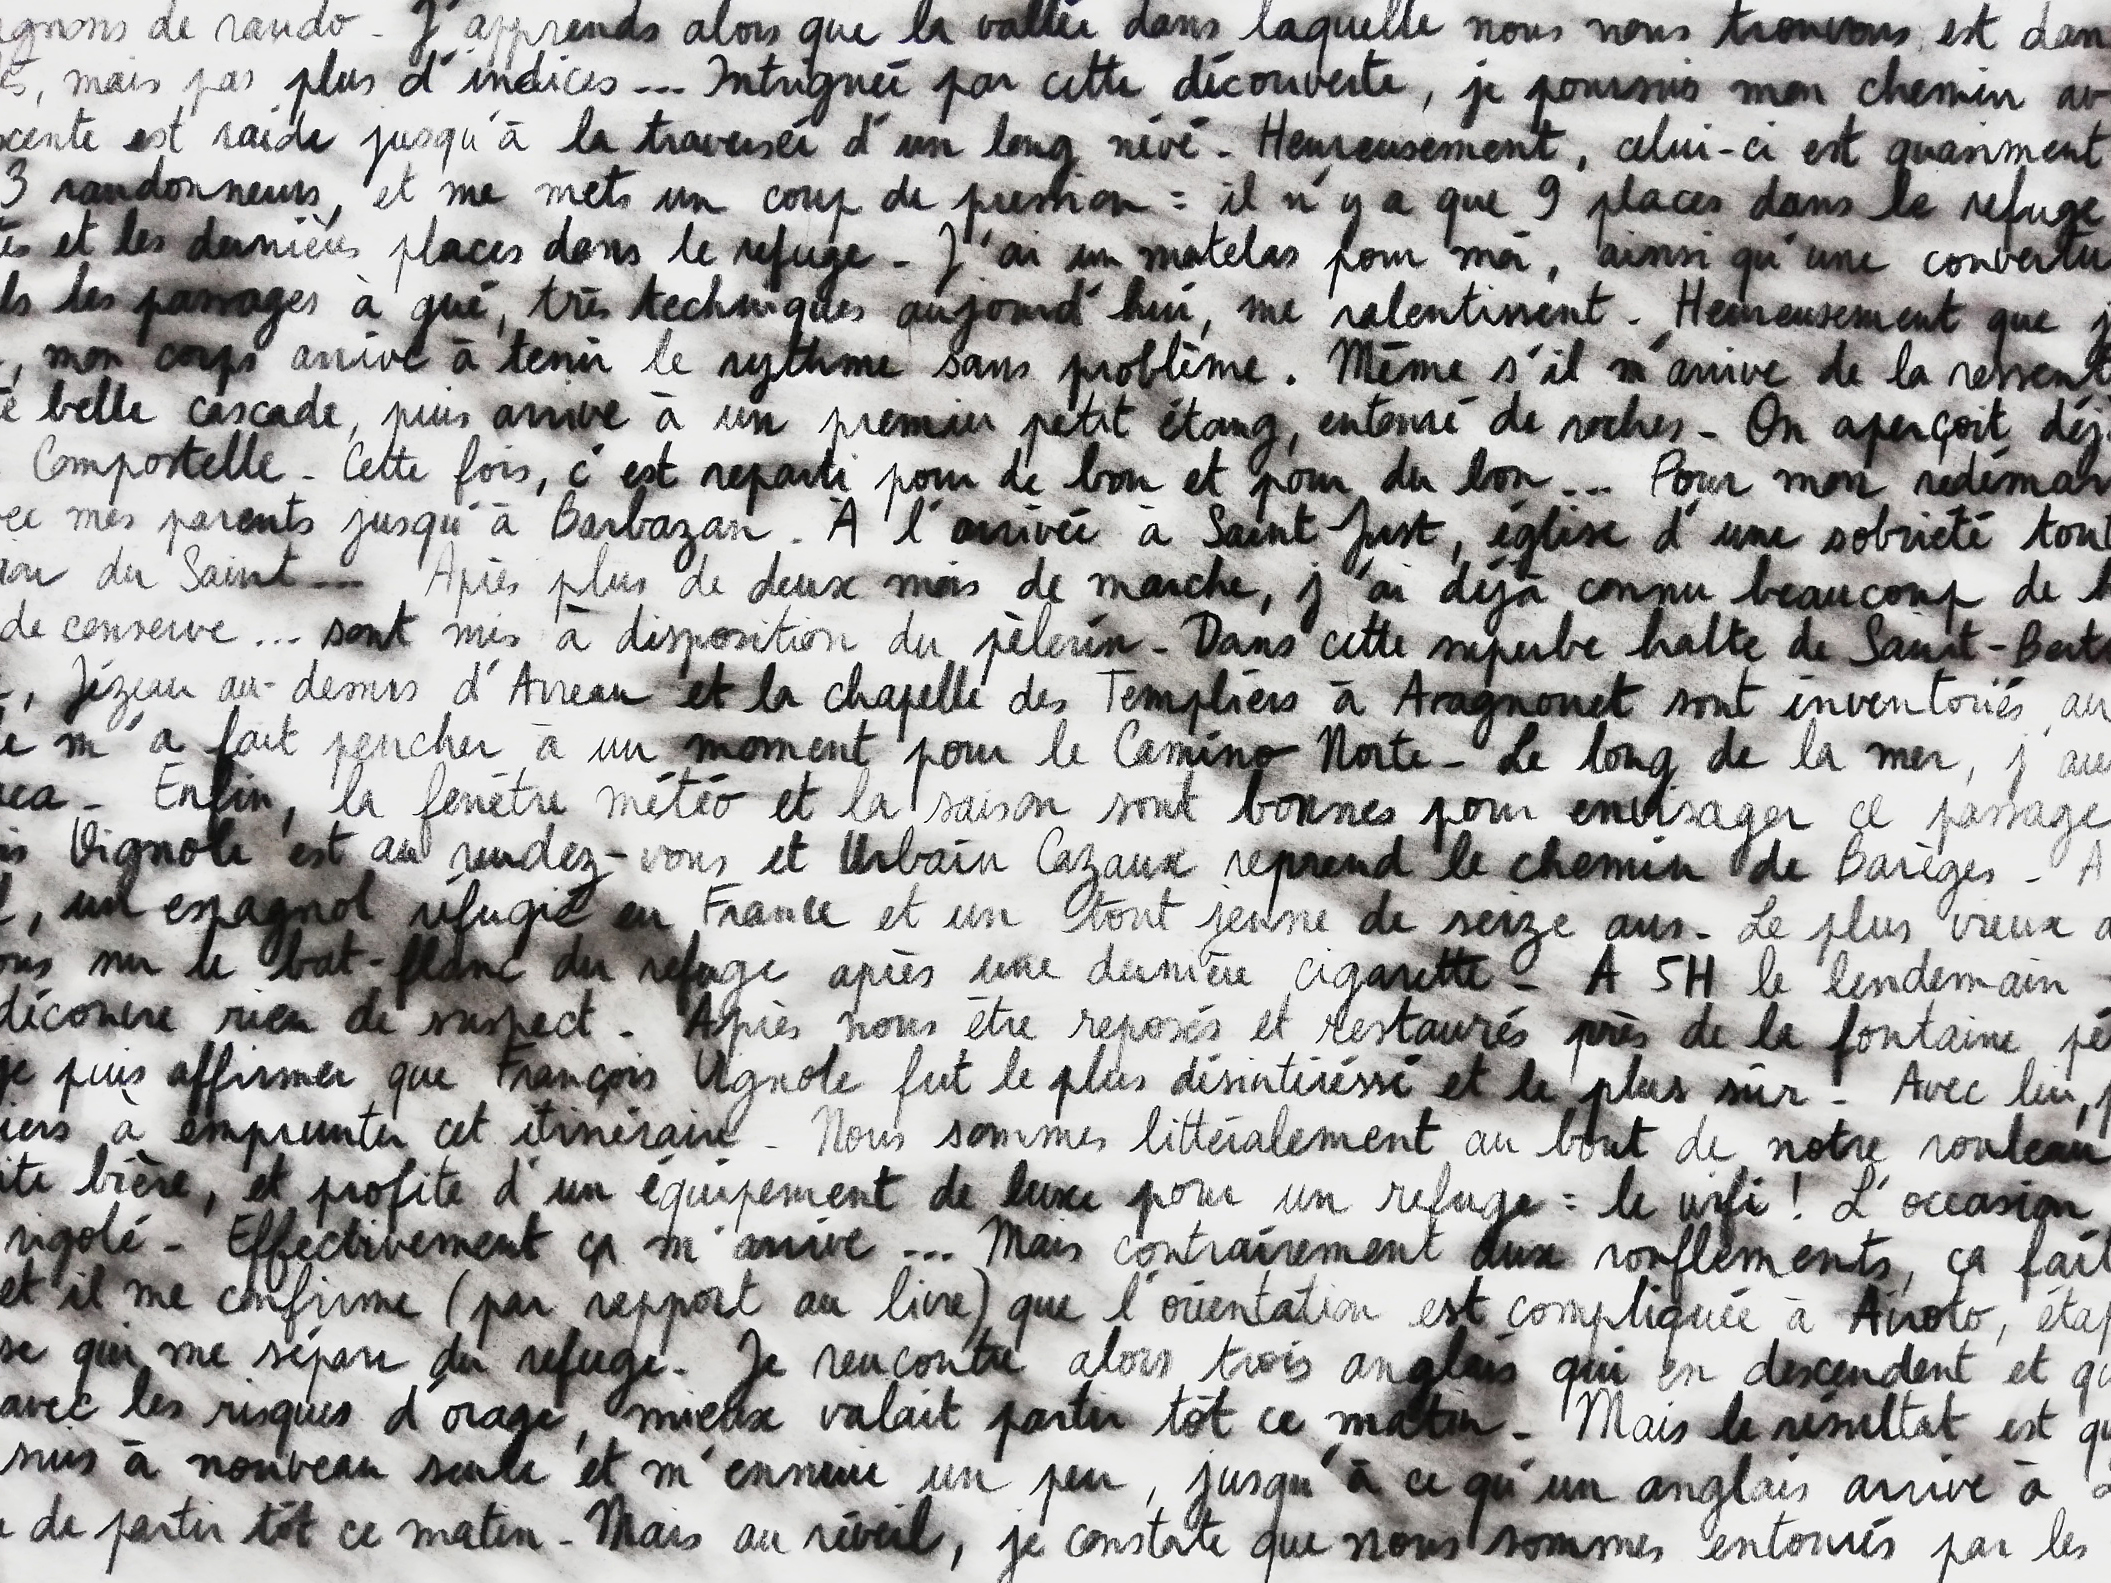 gnons de rando - J'apprends alors que la vallée dans laquelle nous nous trouvons est dan
és, mais pas plus d'indices... Intriguée par cette découverte, je poursuis mon chemin av
scente est raide jusqu'à la traversée d'un long névé - Heureusement, celui-ci est quasiment
3 randonneurs, et me mets un coup de pression : il n'y a que 9 places dans le refuge
és et les dernières places dans le refuge - J'ai un matelas pour moi, ainsi qu'une couvertu
ls les passages à gué, très techniques aujourd'hui, me ralentissent. Heureusement que j
, mon corps arrive à tenir le rythme sans problème. Même s'il m'arrive de la ressent
e belle cascade, puis arrive à un premier petit étang, entouré de roches - On aperçoit déj
Compostelle - Cette fois, c'est reparti pour de bon et pour du bon... Pour mon redémar
ec mes parents jusqu'à Barbazan. À l'arrivée à Saint-Just, église d'une sobriété tout
du Saint... Après plus de deux mois de marche, j'ai déjà connu beaucoup de
de conserve... sont mis à disposition du pèlerin - Dans cette superbe halte de Saint-Bert
, Jézeau au-dessus d'Arreau et la chapelle des Templiers à Aragnouet sont inventoriés au
e m'a fait pencher à un moment pour le Camino Norte - Le long de la mer, j'au
ca - Enfin, la fenêtre météo et la saison sont bonnes pour envisager ce passage
is Vignole est au rendez-vous et Urbain Cazaux reprend le chemin de Barèges - A
, un espagnol réfugié en France et un tout jeune de seize ans - Le plus vieux a
ous sur le bat-flanc du refuge après une dernière cigarette - A 5H le lendemain
découvre rien de suspect - Après nous être reposés et restaurés près de la fontaine pé
je puis affirmer que François Vignole fut le plus désintéréssé et le plus sûr - Avec lui, p
iers à emprunter cet itinéraire - Nous sommes littéralement au bout de notre rouleau
ite bière, et profite d'un équipement de luxe pour un refuge : le wifi ! L'occasion
rigolé - Effectivement ça m'arrive... Mais contrairement aux ronflements, ça fait
et il me confirme (par rapport au livre) que l'orientation est compliquée à Airoto, étap
se qui me sépare du refuge. Je rencontre alors trois anglais qui en descendent et qu
avec les risques d'orage, mieux valait partir tôt ce matin - Mais le résultat est qu
suis à nouveau seule et m'ennuie un peu, jusqu'à ce qu'un anglais arrive à
de partir tôt ce matin - Mais au réveil, je constate que nous sommes entourés par les